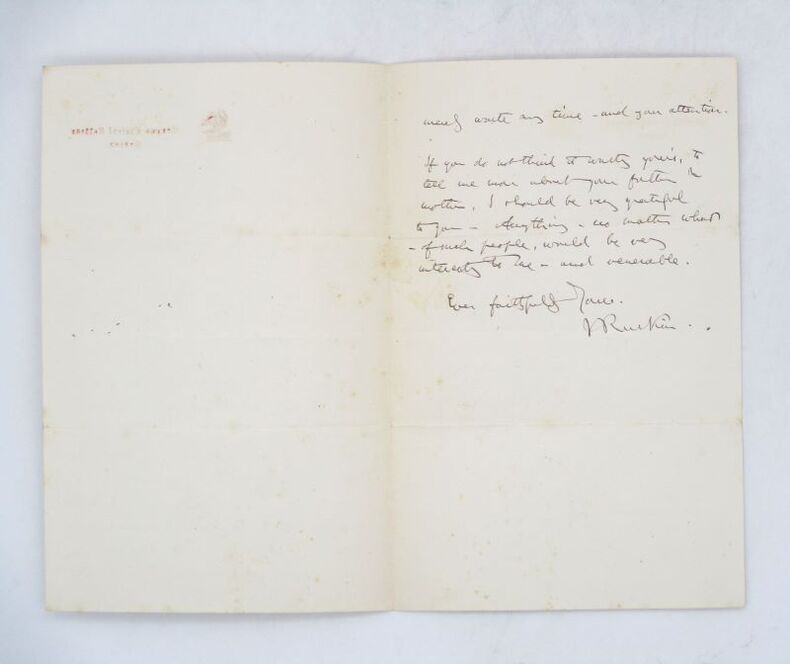 merely waste my time - and your attention.
If you do not think it waste of yours, to
tell me more about your father &
mother, I should be very grateful
to you - Anything - no matter what
- of such people, would be very
interesting to me - and venerable.
Ever faithfully Yours.
J Ruskin.